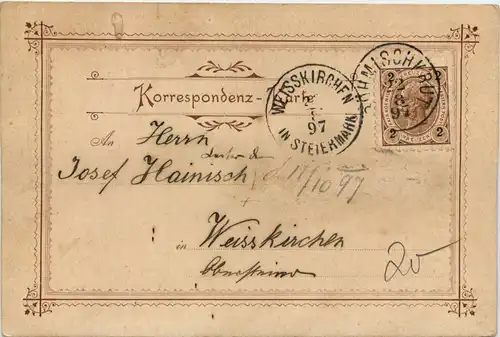 Korrespondenz-Karte
WEISSKIRCHEN
97
IN STEIERMARK
2 2
2 2
97
An Herrn
Josef Hainisch
10 97
in Weisskirchen
20